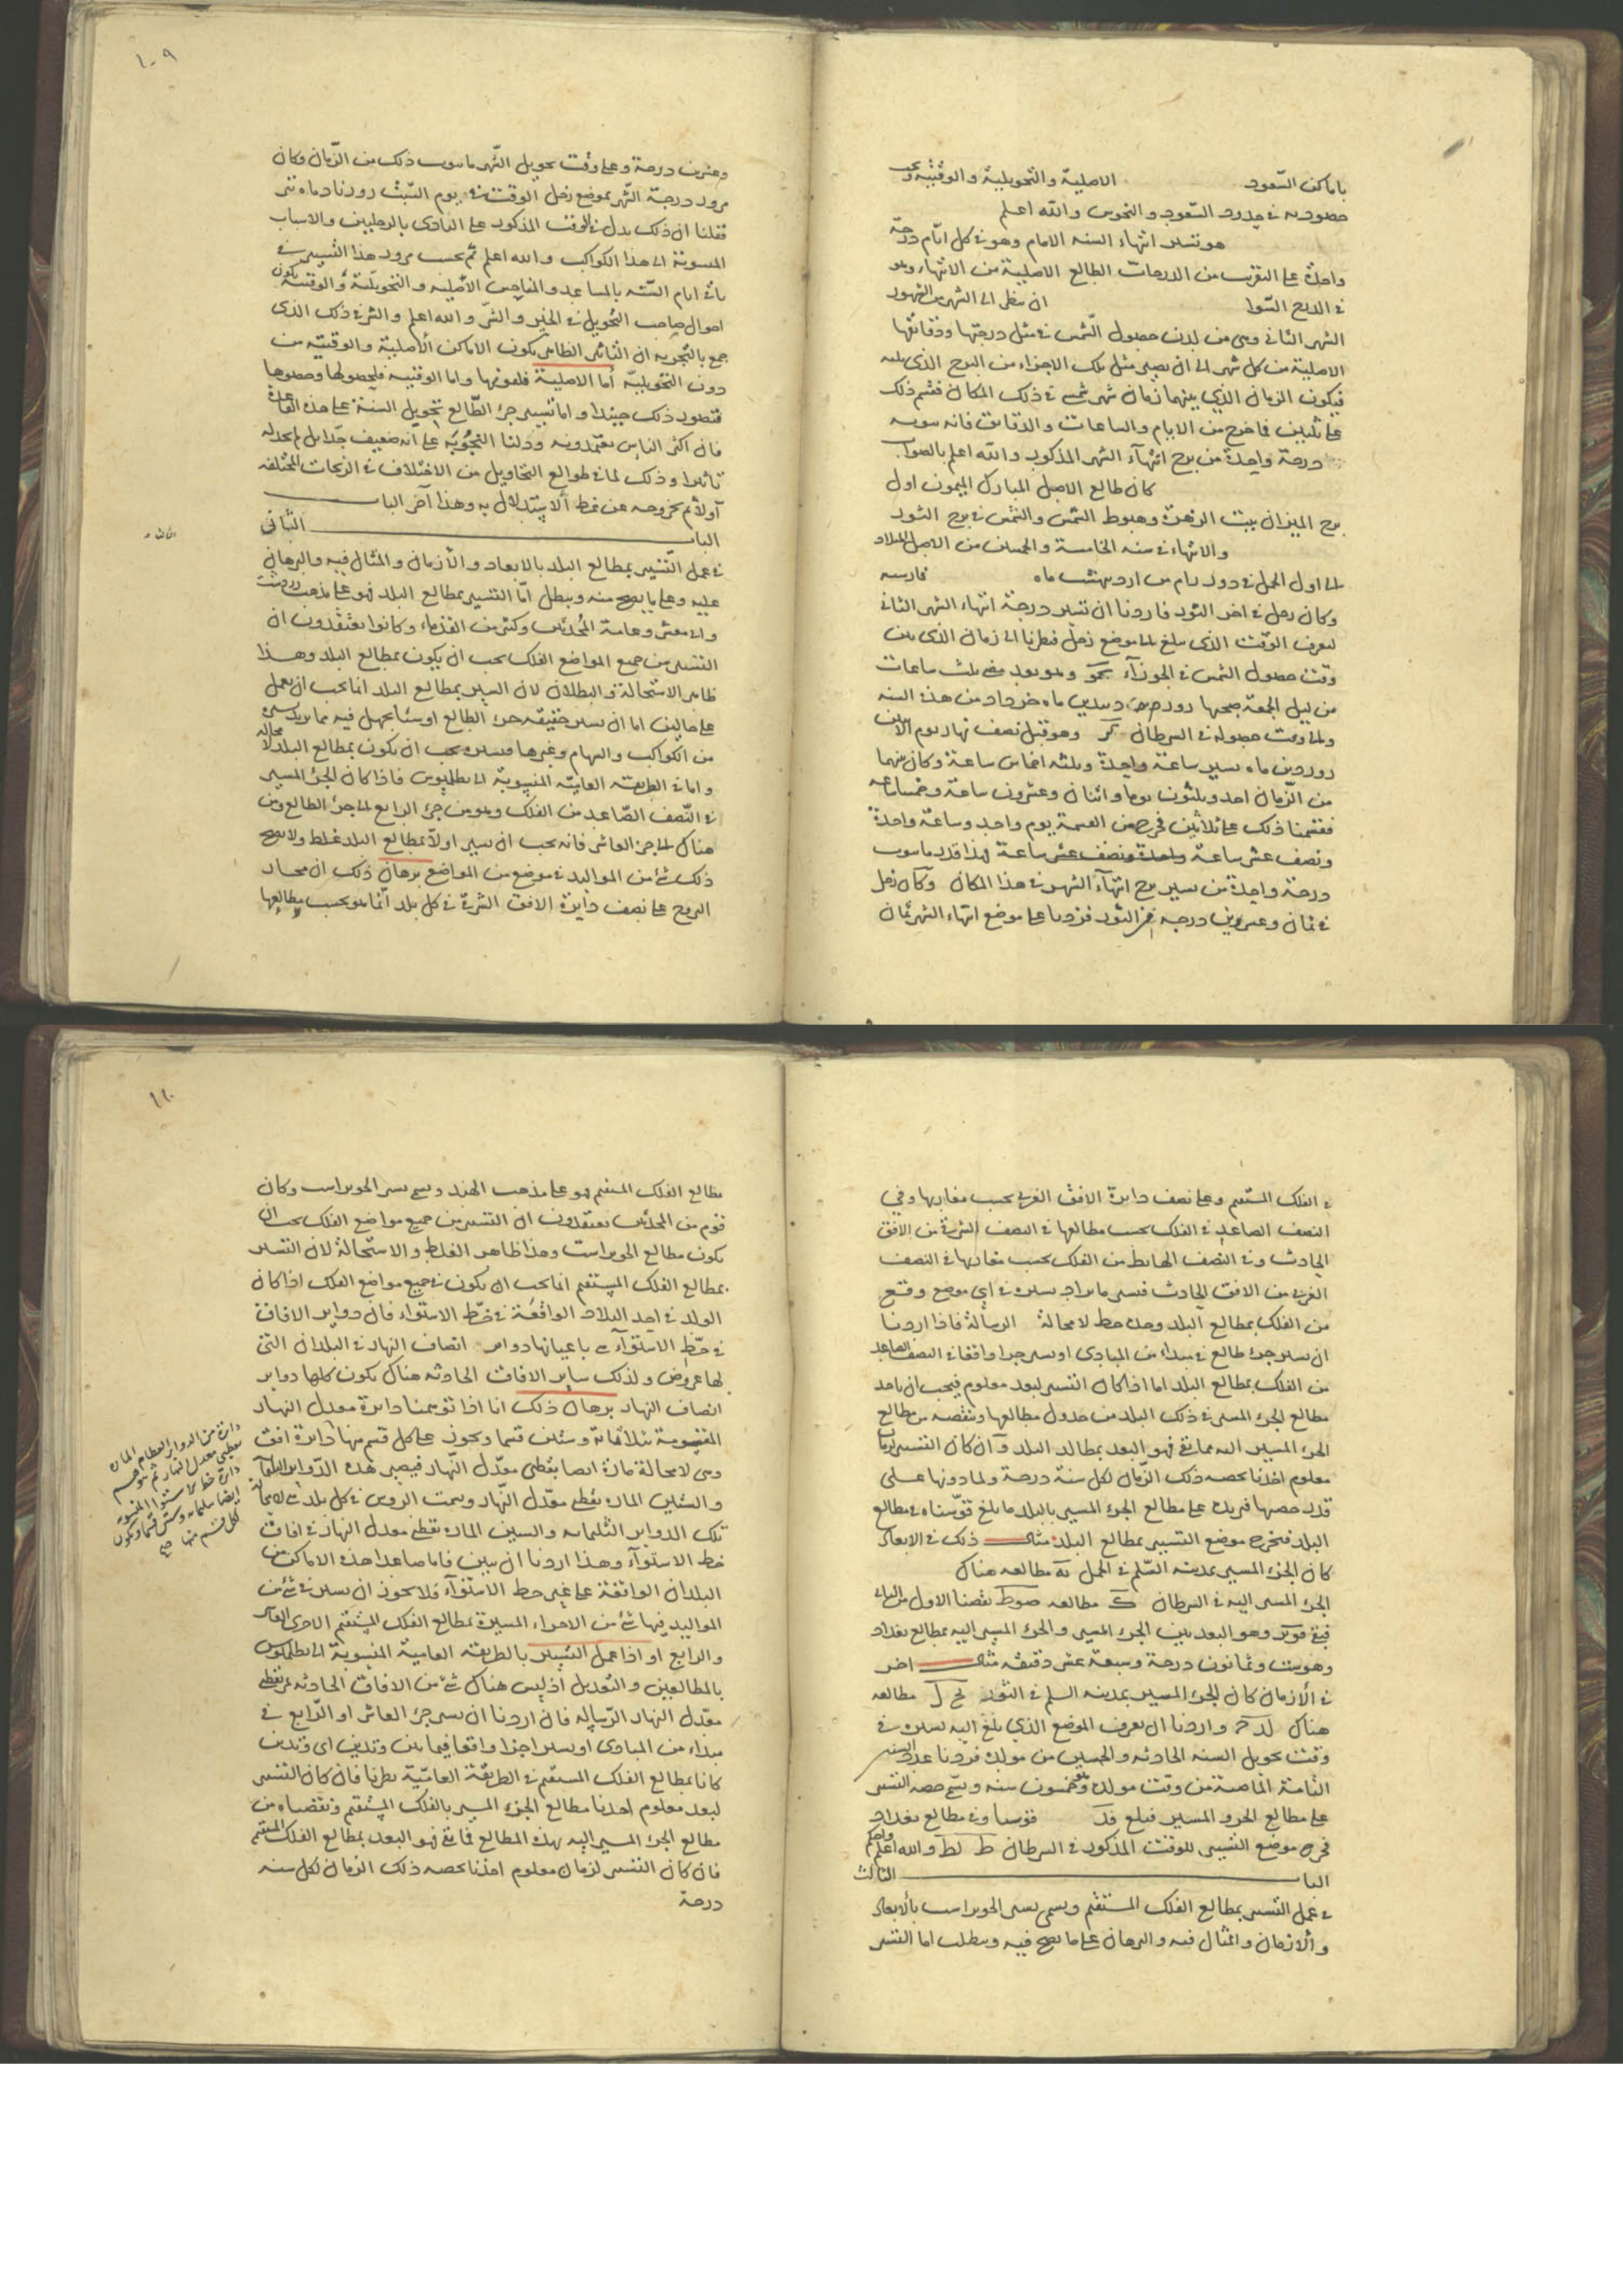 باماكن السّعود الاصلية والتحويلية والوقتية
في حدود السّعود والنحوس والله اعلم
هو تسيير انتهاء السنه الامام وهو في كل ايّام درجة
واحدة على التقريب من الدرجات الطالع الاصلية من الانتهاء وهو
ان ننظر الى الشهر من الشهور
الشهر الثاني وهي من لدن حصول الشمس في مثل درجتها ودقائقها
الاصلية من كل شهر الى ان يصير مثل تلك الاجزاء من البرج الذي يليه
فيكون الزمان الذي بينهما زمان شهر شمسي في ذلك المكان فقسم ذلك
على ثلثين فما خرج من الايام والساعات والدقايق فانه
درجة واحدة من برج انتهآء الشهر المذكور والله اعلم بالصواب
كان طالع الاصل المبارك الميمون اول
برج الميزان بيت الزهرة وهبوط الشمس والشمس في برج الثور
والانتهاء في سنه الخامسة والخمسين من الاصل الميلاد
الى اول الحمل في دور من ارديبهشت ماه فارسيه
وكان زحل في اخر الثور فاردنا ان نسير درجة انتهاء الشهر الثاني
لنعرف الوقت الذي يبلغ الى موضع زحل فنظرنا الى زمان الذي بين
وقت حصول الشمس في الجوزآء وهو بعد مضي ثلث ساعات
من ليل الجمعة صبحها روز ماه خرداد من هذه السنه
والى وقت حصوله في السرطان وهو قبل نصف نهار يوم الاثنين
ماه بيسير ساعة واحدة وثلثه اخماس ساعة وكان بينهما
من الزّمان احد وثلثون يوما واثنان وعشرون ساعة وخمسا ساعة
فقسمنا ذلك على ثلاثين فخرج من القسمة يوم واحد وساعة واحدة
ونصف عشر ساعة واحدة ونصف عشر ساعة فهذا قدر ما ينوب
درجة واحدة من تسيير برج انتهآء الشهر في هذا المكان وكان زحل
في ثمان وعشرين درجة من الثور فزدنا على موضع انتهاء الشهر ثمان
١٠٩
وعشرين درجة وعلى وقت تحويل الشهر ما ينوب ذلك من الزّمان فكان
مرور درجة الشهر بموضع زحل الوقت في يوم السّبت روز ماه تير
فقلنا ان ذلك يدل في الوقت المذكور على التأذي بالزحليين والاسباب
المنسوبة الى هذا الكواكب والله اعلم ثم بحسب مرور هذا التسيير في
باقي ايام السّنه بالمساعد والمناحس الاصلية والتحويليّة والوقتية يكون
احوال صاحب التحويل في الخير والشر والله اعلم والسر في ذلك الذي
جمع بالتجربه ان التاثير الظاهر يكون الاماكن الاصلية والوقتيه من
دون التحويلية أما الاصلية فلقوتها واما الوقتيه فلحصولها وحضورها
فتصور ذلك جيدا واما تسيير جزء الطّالع تحويل السنة على هذه القاعدة
فان اكثر الناس يعتمدونه ودلنا التجربة على انه ضعيف جدا بل لم نجد له
تاثيرا وذلك لما في طوالع التحاويل من الاختلاف في الزيجات المختلفه
اولا ثم خروجه عن نمط ألاستدلال به وهذا آخر الباب
الباب الثاني
في عمل التّسيير بمطالع البلد بالابعاد والأزمان والمثال فيه والبرهان
عليه وعلى ما يصح منه ويبطل امّا التسيير بمطالع البلد فهو على مذهب زردشت
وابي معشر وعامة المُحدثين وكثير من القدماء وكانوا يعتقدون ان
التسيير من جميع المواضع الفلك يجب ان يكون بمطالع البلد وهذا
ظاهر الاستحالة والبطلان لان السير بمطالع البلد انما يجب ان يعمل
على حالين اما ان نسير حقيقه جزء الطالع او شئا يجعل فيه مما نريد تسييره
من الكواكب والسهام وغيرها فتسييره يجب ان يكون بمطالع البلد لا محالة
واما في الطريقه العاميّه المنسوبة الى بطلميوس فاذا كان الجزء المسير
في النّصف الصّاعد من الفلك وهو من جزء الرابع الى جزء الطالع ومن
هناك الى جزء العاشر فانه يجب ان يسير اولا بمطالع البلد غلط ولا يصح
ذلك شئ من المواليد في موضع من المواضع برهان ذلك ان مجاز
البروج على نصف دايرة الافق الشرقي في كل بلد انّما هو بحسب مطالعها
في الفلك المستقيم وعلى نصف دايرة الافق الغربي بحسب مغاربها وفي
النصف الصاعد في الفلك بحسب مطالعها في النصف الشرقي من الافق
الحادث وفي النصف الهابط من الفلك بحسب مغاربها في النصف
الغربي من الافق الحادث فتسيير ما يراد تسييره في اي موضع وقع
من الفلك بمطالع البلد وحده خطا لا محالة الرسالة فاذا اردنا
ان نسير جزء طالع في مبداء من المبادي او نسير جزء واقعا في النصف الصاعد
من الفلك بمطالع البلد اما اذا كان التسيير لبعد معلوم فيجب ان ناخذ
مطالع الجزء المسير في ذلك البلد من جدول مطالعها وننقصه من مطالع
الجزء المسير اليه فما بقي فهو البعد بمطالع البلد وان كان التسيير لزمان
معلوم اخذنا بحصه ذلك الزّمان لكل سنة درجة ولما دونها على
قدر حصتها فزيد على مطالع الجزء المسير بالبلد ما بلغ قوّسناه في مطالع
البلد فنخرج موضع التسيير بمطالع البلد مثال ذلك في الابعاد
كان الجزء المسير بمدينه السّلم في الحمل مطالعه هناك
الجزء المسير اليه في السرطان مطالعه نقصنا الاول من الثاني
فبقي وهو البعد بين الجزء المسير والجزء المسير اليه بمطالع بغداد
وهو ست وثمانون درجة وسبعة عشر دقيقه مثال اخر
في الأزمان كان للجزء المسير بمدينه السلم في الثور مطالعه
هناك واردنا ان نعرف الموضع الذي بلغ اليه تسييره في
وقت تحويل السنه الحادثه والخمسين من مولده فزدنا عدد السنين
التامة الماضية من وقت مولده وخمسون سنه وهي حصه التسيير
على مطالع الجزء المسير فبلغ قوّسنا في مطالع بغداد
فخرج موضع التسيير للوقت المذكور في السرطان ط لط والله اعلم
الباب الثالث
في عمل التسيير بمطالع الفلك المستقيم ويسمى بالأبعاد
وألازمان والمثال فيه والبرهان على ما يصح فيه ويبطل اما التسيير
١١٠
مطالع الفلك المستقيم فهو على مذهب الهند وكان
قوم من المحدثين يعتقدون ان التسيير من جميع مواضع الفلك يجب ان
يكون مطالع وهذا ظاهر الغلط والاستحالة لان التسيير
بمطالع الفلك المستقيم انما يجب ان يكون في جميع مواضع الفلك اذا كان
الولد في احد البلاد الواقعة في خط الاستواء فان دواير الافاق
في خط الاستوآء هي باعيانها دواير انصاف النهار في البلدان التي
لها عروض ولذلك ساير الافاق الحادثه هناك يكون كلها دواير
انصاف النهار برهان ذلك انا اذا توهمنا دايرة معدل النهار
المقسومة بثلاثمائة وستين قسما ويجوز على كل قسم منها دايرة افق
وهي لا محالة مارة ايضا بقطبي معدّل النهار فيصير هذه الدّواير الثلثمائة
والستين المارة بقطبي معدّل النّهار وسمت الروس في كل بلد هي لا محالة
تلك الدواير الثلثمايه والستين المارة بقطبي معدل النهار في افاق
خط الاستوآء وهذا اردنا ان نبين فاما ما عدا هذه الاماكن من
البلدان الواقعة على غير خط الاستوآء فلا يجوز ان نسير في شئ من
المواليد فيها شئ من الاجزاء المسيرة بمطالع الفلك المستقيم الا جزء العاشر
والرابع او اذا عمل التسيير بالطريقه العامية المنسوبة الى بطلميوس
بالمطالعين والتعديل اذ ليس هناك شئ من الافاق الحادثه تمر بقطبي
معدّل النهار الرّساله فان اردنا ان نسير جزء العاشر او الرّابع في
مبداء من المبادي او نسير اجزا واقعا فيما بين وتدين اي وتدين
كانا بمطالع الفلك المستقيم في الطريقة العاميّة نظرنا فان كان التسيير
لبعد معلوم اخذنا مطالع الجزء المسير بالفلك المستقيم ونقصناه من
مطالع الجزء المسير اليه بهذه المطالع فما بقي فهو البعد بمطالع الفلك المستقيم
فان كان التسيير لزمان معلوم اخذنا بحصه ذلك الزمان لكل سنه
درجة
دائرة من الدواير العظام المارة
بقطبي معدل النهار ثم
دائرة خط الاستوا المقسومة
ايضا بثلثمايه وستين قسما ويكون
لكل قسم منها صح